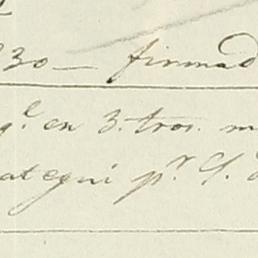 30 — firmad
q.e en 3. tros. m
ategui p.r